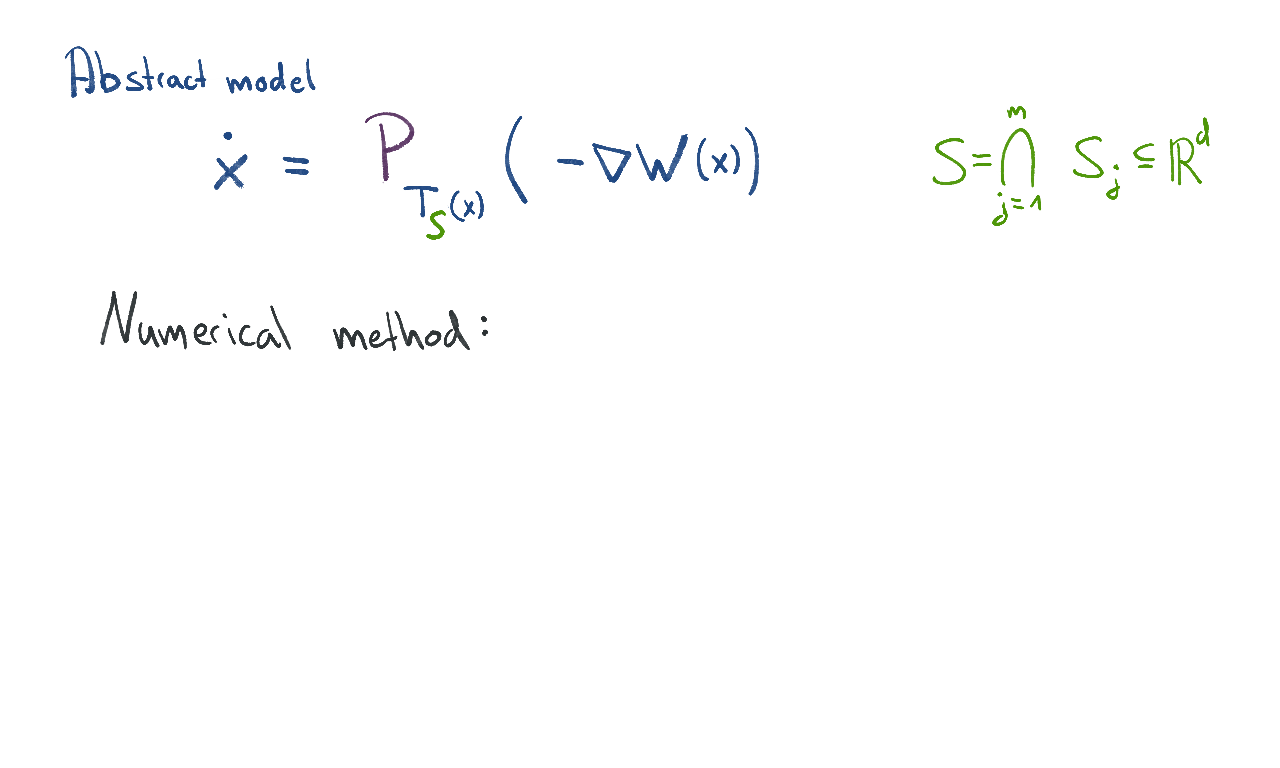 Abstract model
ẋ = P_{T_S(x)} ( −∇W(x) )
S = ⋂_{j=1}^{m} S_j ⊆ ℝ^d
Numerical method: